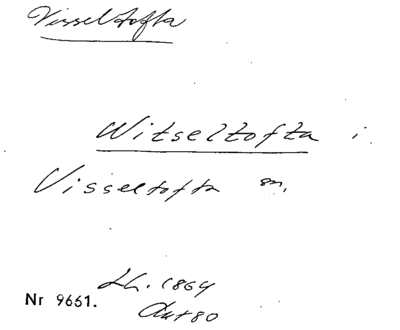 Visseltofta
Witseltofta i
Visseltofta sn.
Lh. 1864
Nr 9661.